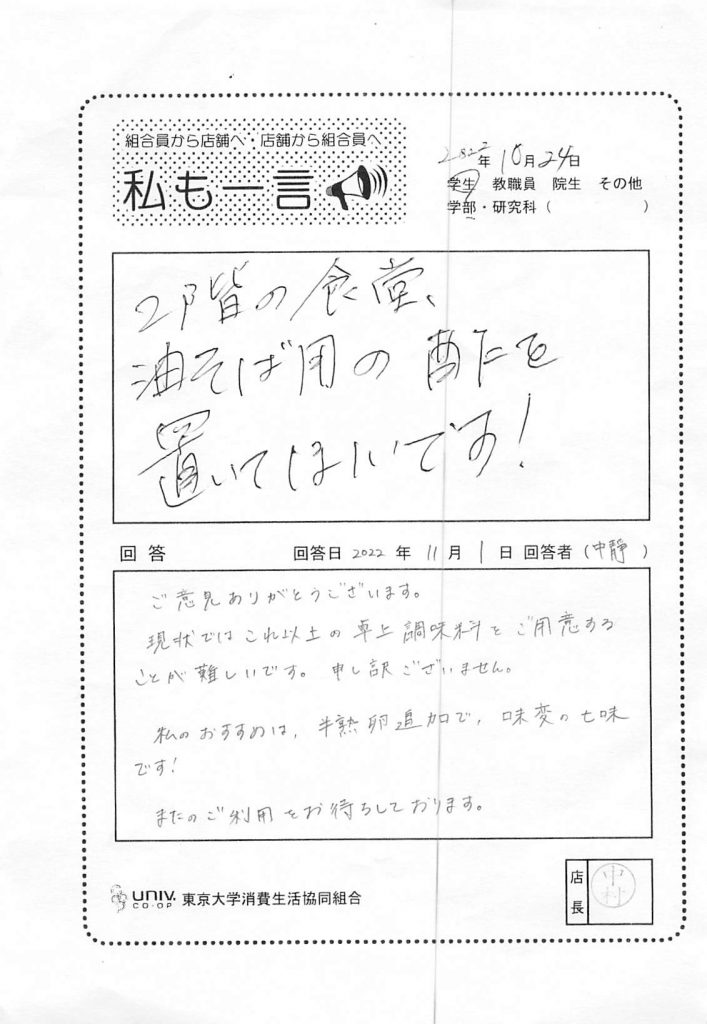 組合員から店舗へ・店舗から組合員へ
私も一言
2022年10月24日
学生 教職員 院生 その他
学部・研究科（ ）
2階の食堂、
油そば用の酢を
置いてほしいです!
回答 回答日 2022 年 11 月 1 日 回答者（中静）
ご意見ありがとうございます。
現状ではこれ以上の卓上調味料をご用意する
ことが難しいです。申し訳ございません。
私のおすすめは、半熟卵追加で、味変の七味
です!
またのご利用をお待ちしております。
UNIV.
CO-OP 東京大学消費生活協同組合
店長
中村